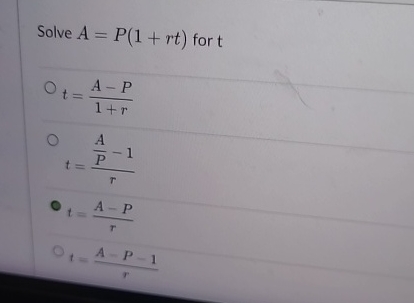 Solve A = P(1 + rt) for t
t = \frac{A - P}{1 + r}
t = \frac{\frac{A}{P} - 1}{r}
t = \frac{A - P}{r}
t = \frac{A - P - 1}{r}